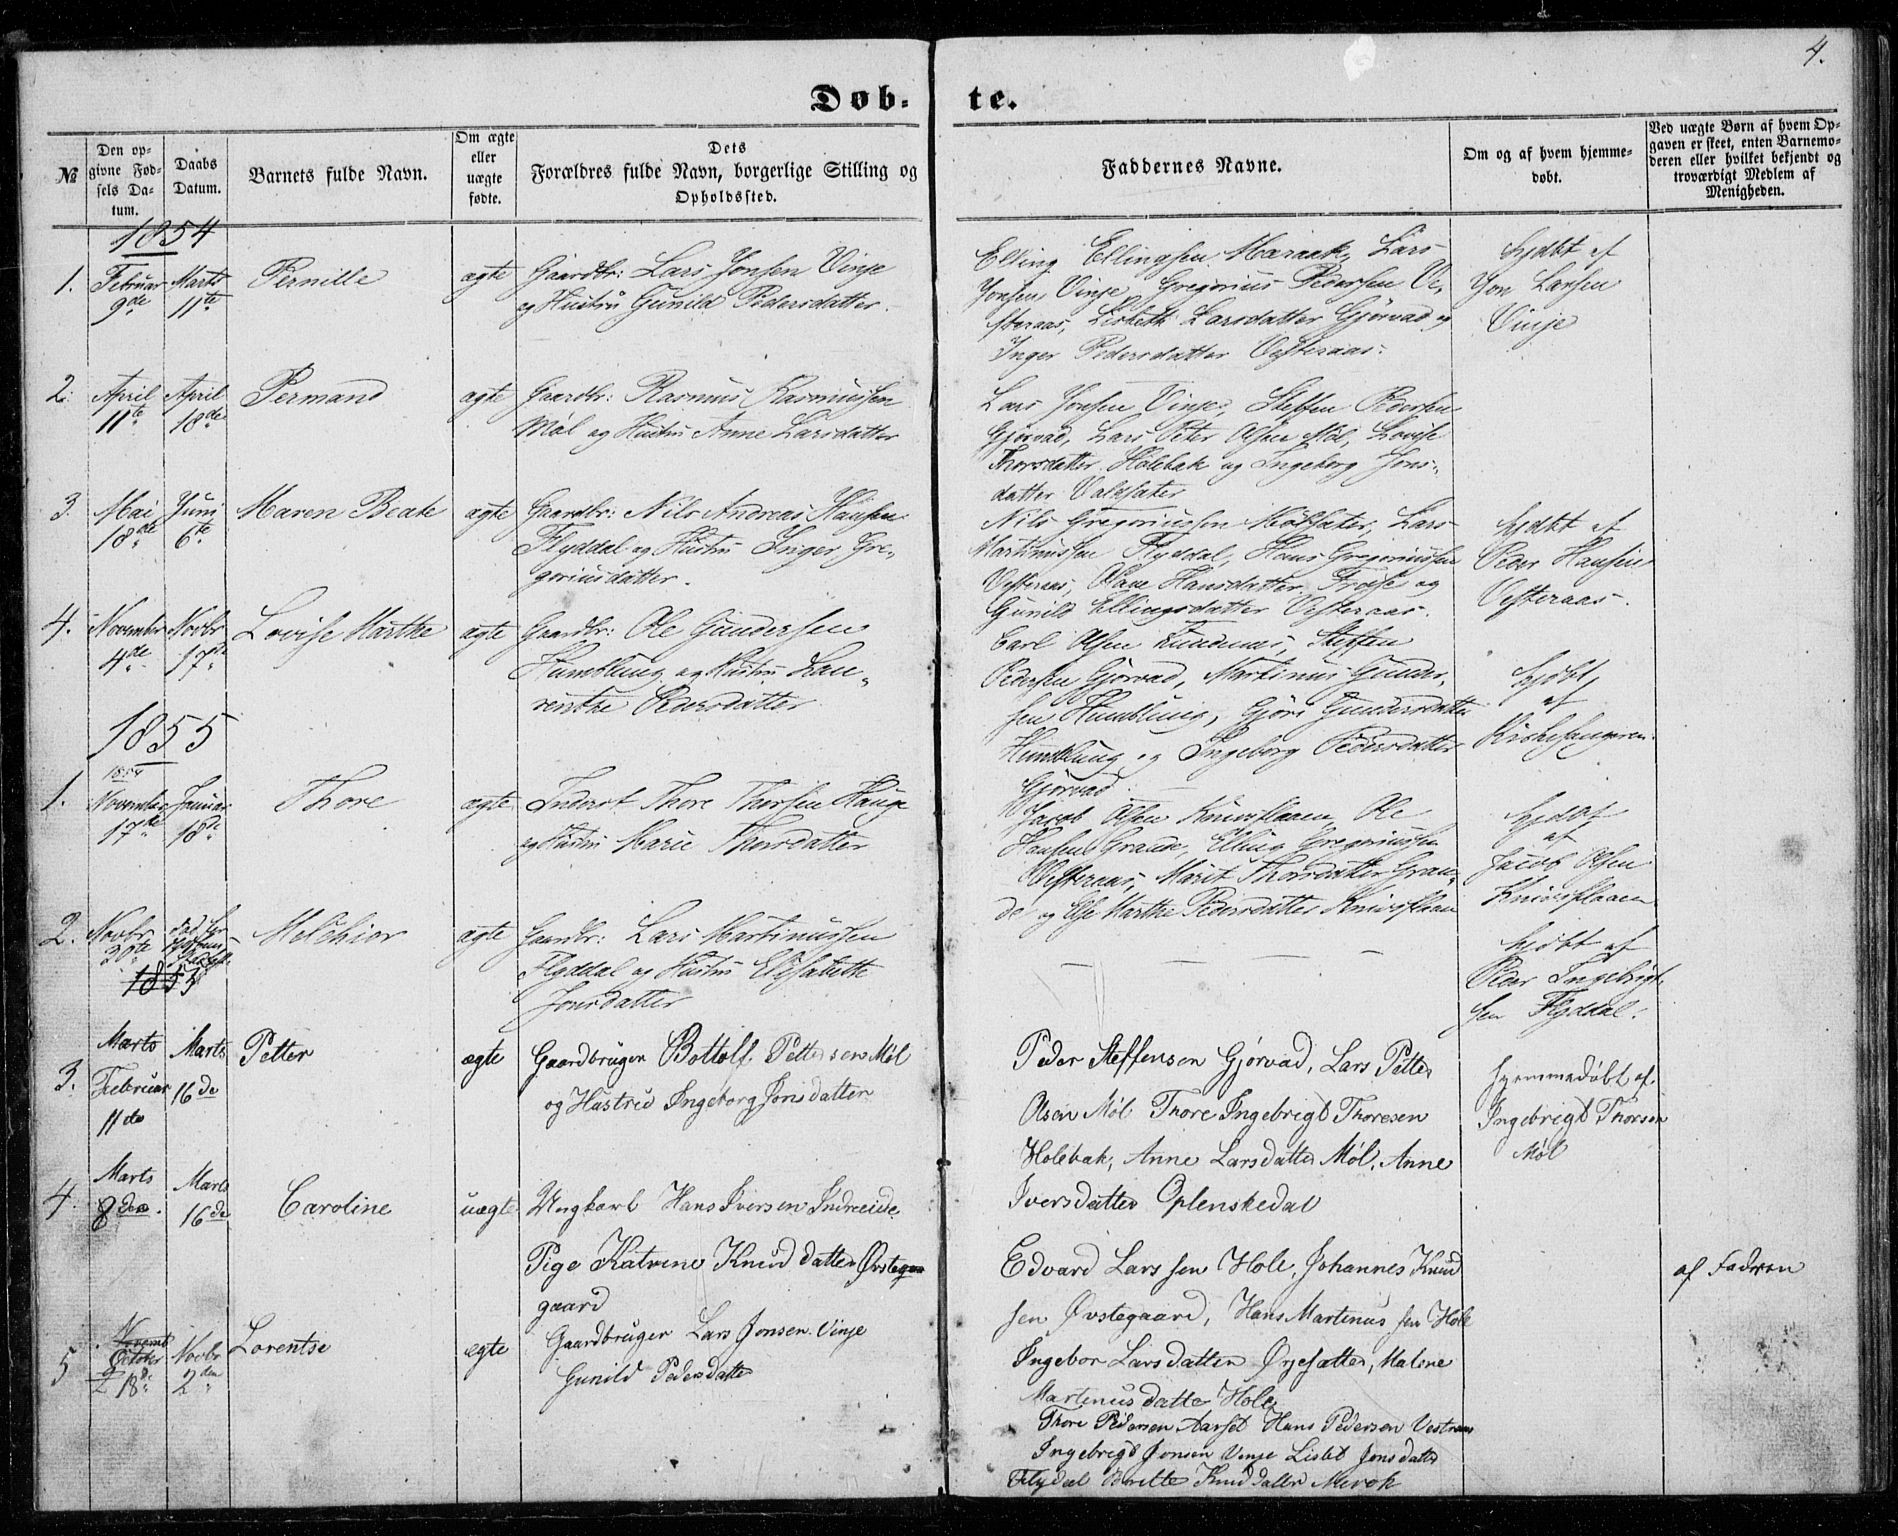 4.
Døb-te.
№
Den op-
givne Fød-
sels Da-
tum.
Daabs
Datum.
Barnets fulde Navn.
Om ægte
eller
uægte
fødte.
Dets
Forældres fulde Navn, borgerlige Stilling og
Opholdssted.
Faddernes Navne.
Om og af hvem hjemme-
døbt.
Ved uægte Børn af hvem Op-
gaven er skeet, enten Barnemo-
deren eller hvilket bekjendt og
troværdigt Medlem af
Menigheden.
1854
1.
Februar
9de
Marts
11te
Pernille
ægte
Gaardbr: Lars Jonsen Vinje
og Hustru Gunild Pedersdatter.
Elling Ellingsen Maraak, Lars
Jonsen Vinje, Gregorius Pedersen Ve-
steraas, Lisbeth Larsdatter Gjørvad og
Inger Pedersdatter Vesteraas.
Hjdbt af
Jon Larsen
Vinje
2.
April
11te
April
18de
Permand
ægte
Gaardbr: Rasmus Rasmussen
Møl og Hustru Anne Larsdatter
Lars Jonsen Vinje, Steffen Pedersen
Gjørvad, Lars Peter Olsen Møl, Lovise
Thorsdatter Holebak og Ingeborg Jons-
datter Valdsæter
3.
Mai
18de
Juni
6te
Maren Beate
ægte
Gaardbr: Nils Andreas Hansen
Flyddal og Hustru Inger Gre-
goriusdatter.
Nils Gregoriussen Mølsæter, Lars
Martinussen Flyddal, Hans Gregoriussen
Vesteraas, Oline Hansdatter Frøise og
Gunild Ellingsdatter Vesteraas.
Hjdbt af
Peder Hansen
Vesteraas.
4.
Novembr
4de
Novbr
17de
Lovise Marthe
ægte
Gaardbr: Ole Gundersen
Humblung og Hustru Lau-
rentse Pedersdatter
Carl Olsen Lundenæs, Steffen
Pedersen Gjørvad, Martinus Gunder-
sen Humblung, Gjøri Gundersdatter
Humblung og Ingeborg Pedersdatter
Gjørvad.
Hjdbt
af
Kirkesangeren.
1855
1.
1854
November
17de
Januar
18de
Thore
ægte
Inderst Thore Thorsen Hauge
og Hustru Marie Thorsdatter
Jacob Olsen Knivsflaaen, Ole
Hansen Grande, Elling Gregoriussen
Vesteraas, Marit Thorsdatter Gran-
de og Else Marthe Pedersdatter Knivsflaaen
Hjdbt
af
Jacob Olsen
Knivsflaaen
2.
Novbr
30te
Melchior
ægte
Gaardbr: Lars Martinussen
Flyddal og Hustru Elisabeth
Jonsdatter
Hjdbt af
Peder Ingebrigt-
sen Flyddal.
1855
3.
Marts
Februar
11de
Marts
16de
Petter
ægte
Gaardbruger Bottolf Pettersen Møl
og Hustru Ingeborg Jonsdatter
Peder Steffensen Gjørvad, Lars Petter
Olsen Møl Thore Ingebrigt Thoresen
Holebak, Anne Larsdatter Møl, Anne
Iversdatter Oplenskedal
Hjemmedøbt af
Ingebrigt Thoresen
Møl
4.
Marts
8de.
Marts
16de
Caroline
uægte
Ungkarl Hans Iversen Indreeide
Pige Katrine Knuddatter Øvstegaa
gaard
Edvard Larssen Hole, Johannes Knud
sen Øvstegaard, Hans Martinussen Hole
Ingebor Larsdatter Ørjesætter, Malene
Martinusdatter Hole
af Fadren
5
Novemb
October
2 18de
Novbr
2den
Lorentse
ægte
Gaardbruger Lars Jonsen Vinje
Gunild Pedersdatter
Thore Pedersen Aarset Hans Pedersen Vestraas
Ingebrigt Jonsen Vinje Lisbt Jonsdatter
Flydal Beritte Knuddatter Merok